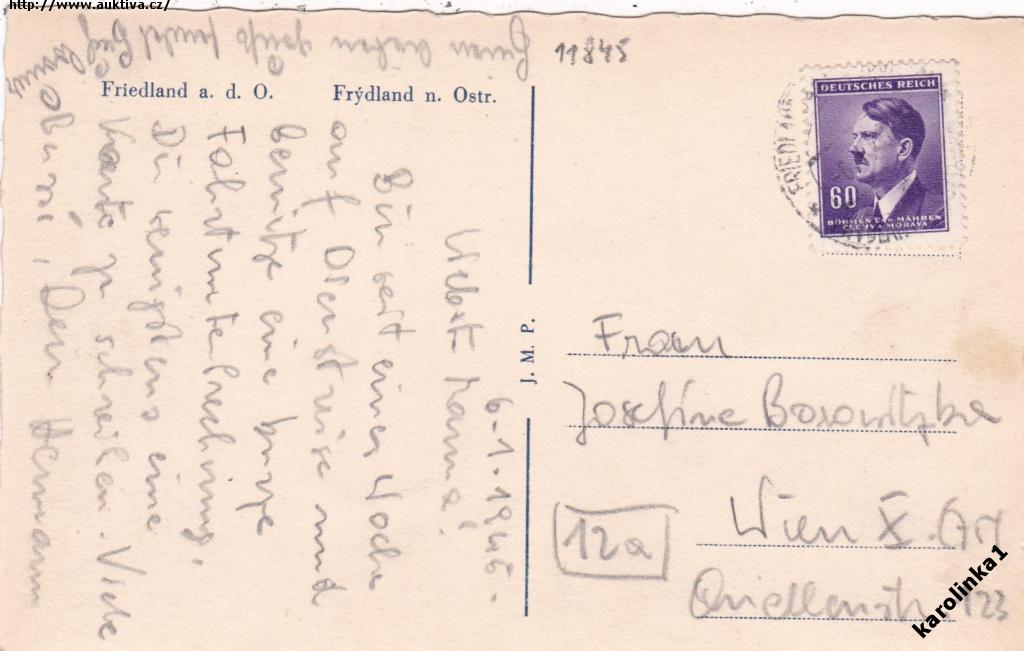 http://www.auktiva.cz/
11845
Friedland a. d. O. Frýdland n. Ostr.
6.1.1945.
Liebste Mama!
Bin seit einer Woche
auf Dienstreise und
benütze eine kurze
Fahrtunterbrechung,
Dir wenigstens eine
Karte zu schreiben. Viele
Bussi, Dein Hermann
J. M. P.
DEUTSCHES REICH
60
BÖHMEN UND MÄHREN
ČECHY A MORAVA
FRIEDLAND
Frau
Josefine Borowitzka
Wien X.
12a
Quellenstr. 123
karolinka1